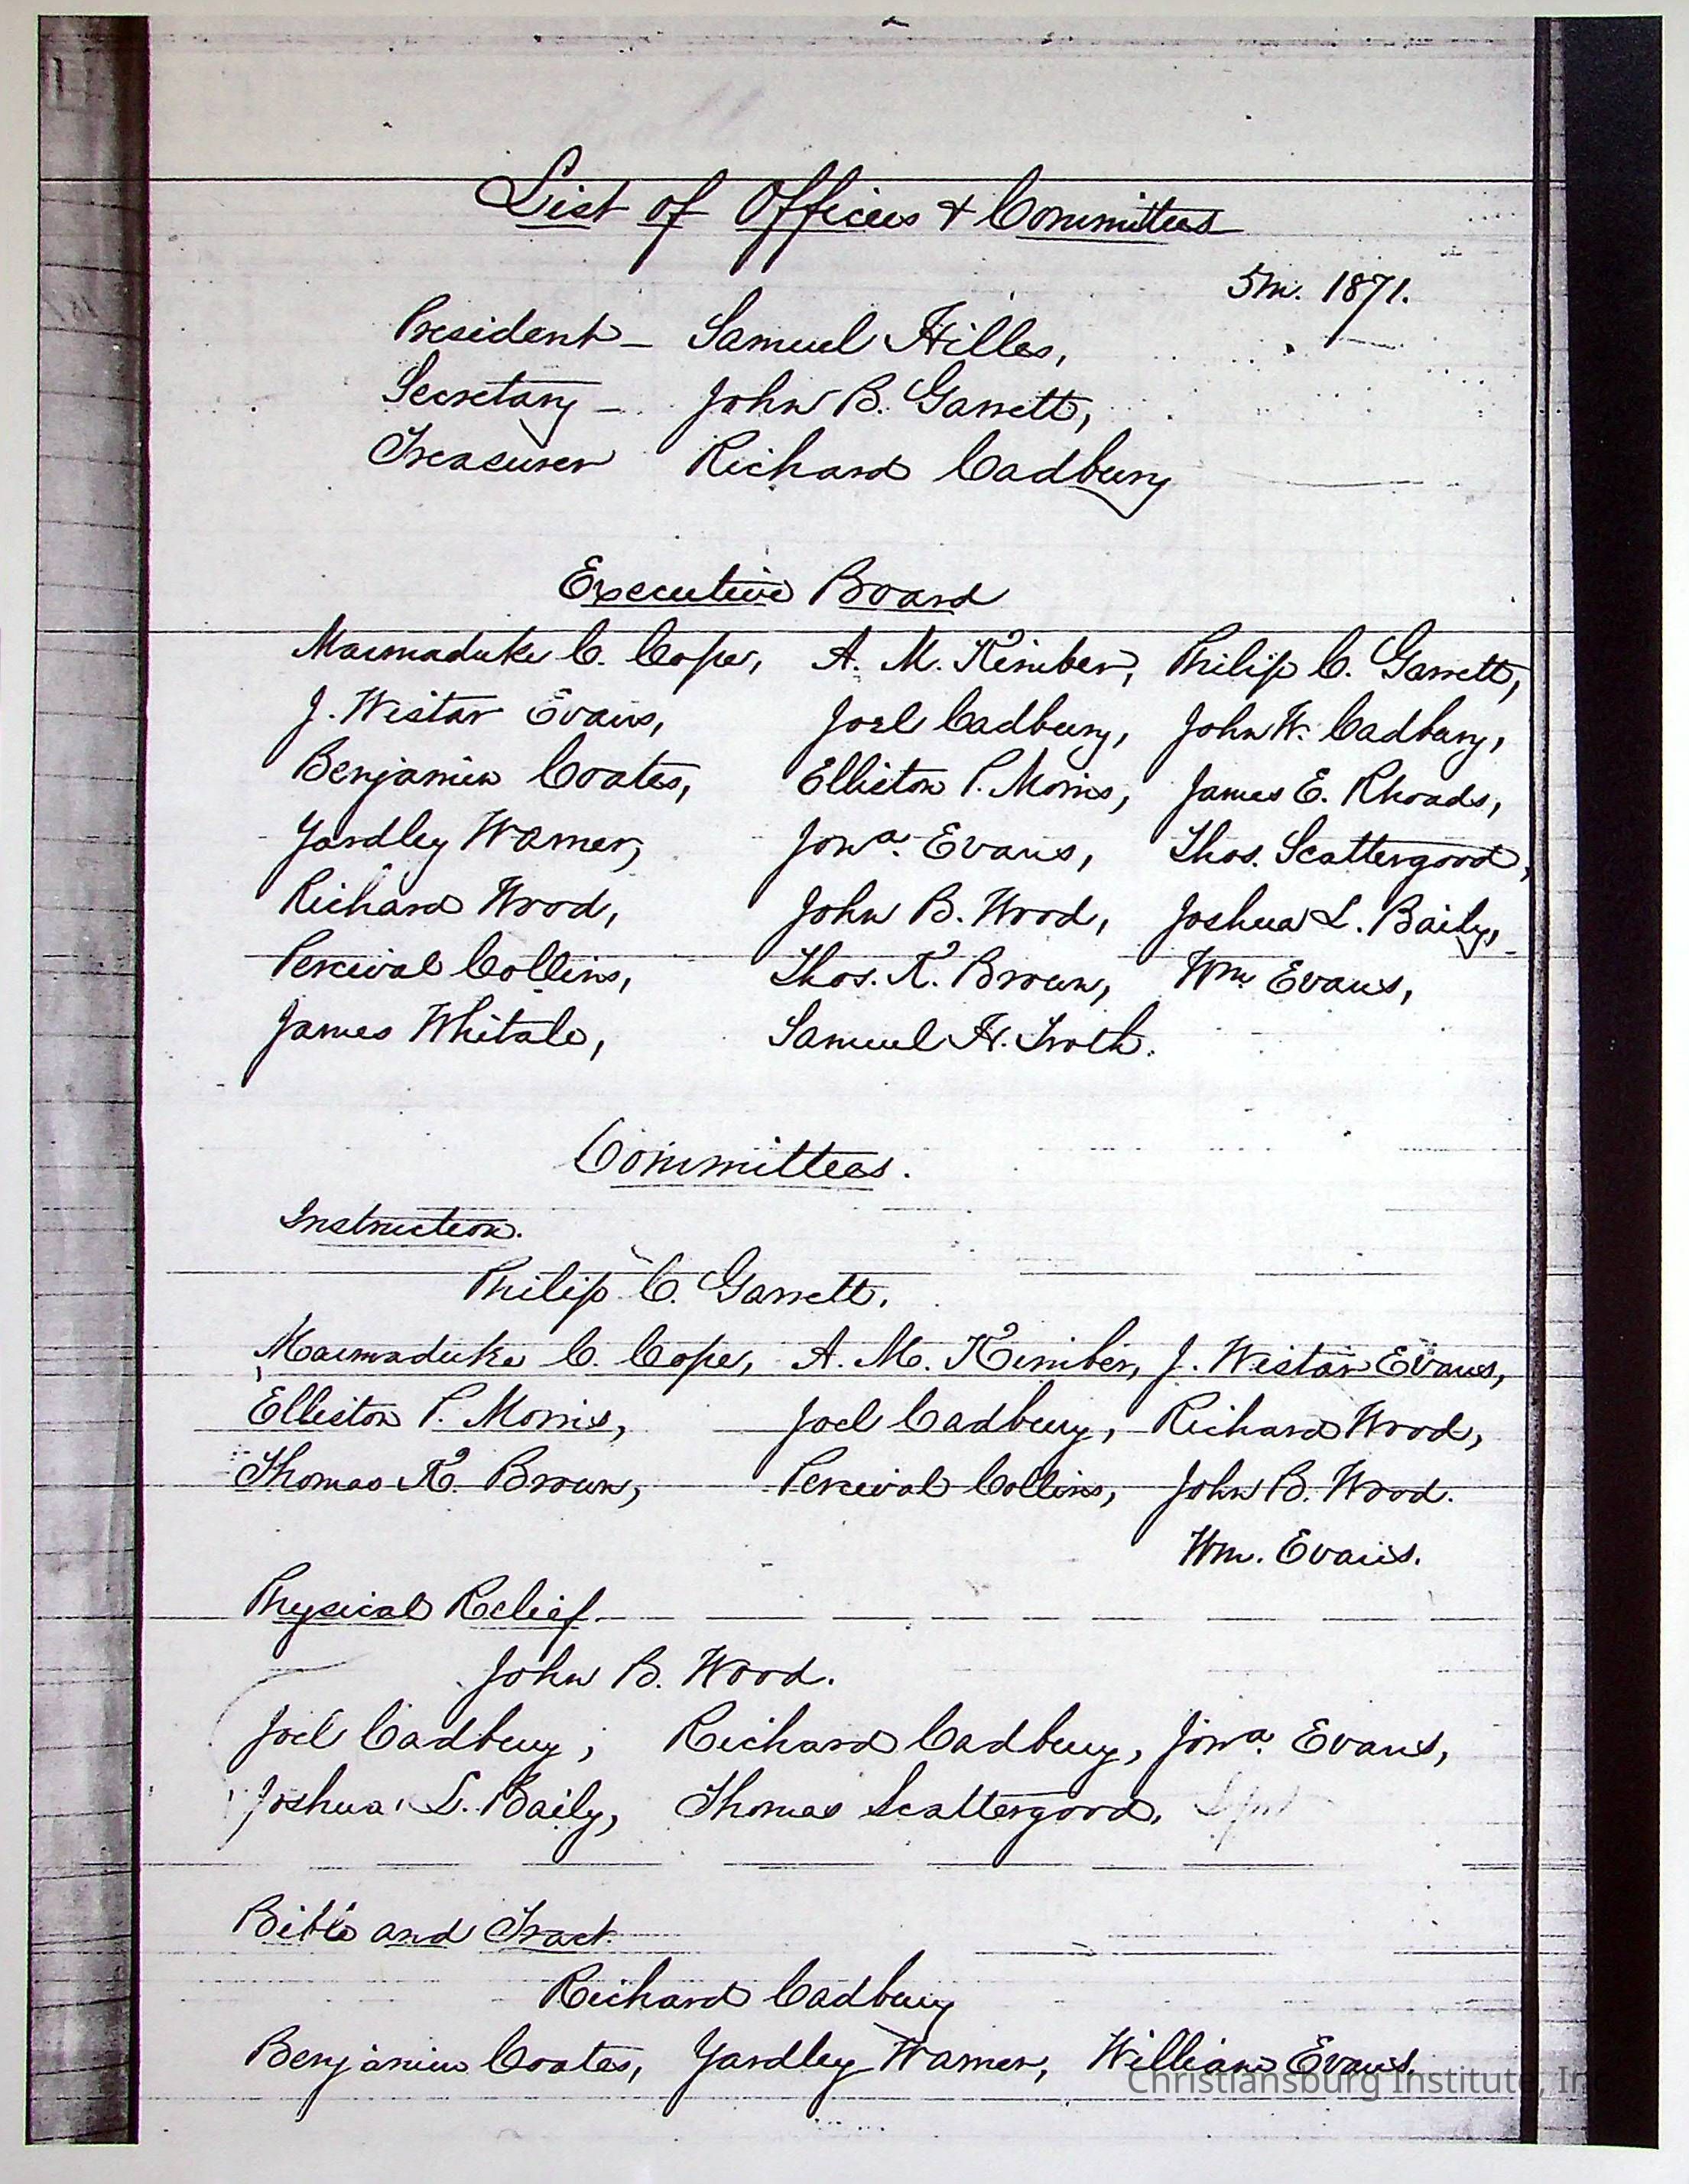 List of Officers & Committees
5m. 1871.
President – Samuel Hilles,
Secretary – John B. Garrett,
Treasurer Richard Cadbury
Executive Board
Marmaduke C. Cope, A. M. Kimber, Philip C. Garrett,
J. Wistar Evans, Joel Cadbury, John W. Cadbury,
Benjamin Coates, Elliston P. Morris, James E. Rhoads,
Yardley Warner, Jona. Evans, Thos. Scattergood,
Richard Wood, John B. Wood, Joshua L. Baily,
Percival Collins, Thos. K. Brown, Wm. Evans,
James Whitall, Samuel H. Troth.
Committees.
Instruction.
Philip C. Garrett.
Marmaduke C. Cope, A. M. Kimber, J. Wistar Evans,
Elliston P. Morris, Joel Cadbury, Richard Wood,
Thomas K. Brown, Percival Collins, John B. Wood.
Wm. Evans.
Physical Relief.
John B. Wood.
Joel Cadbury, Richard Cadbury, Jona. Evans,
Joshua L. Baily, Thomas Scattergood,
Bible and Tract
Richard Cadbury
Benjamin Coates, Yardley Warner, William Evans.
Christiansburg Institute, In